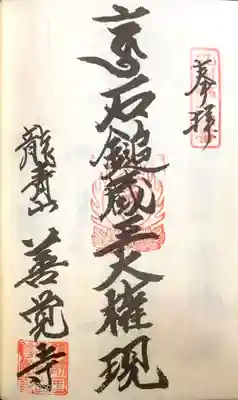 奉拝
京石鎚蔵王大権現
龍青山 善覚寺